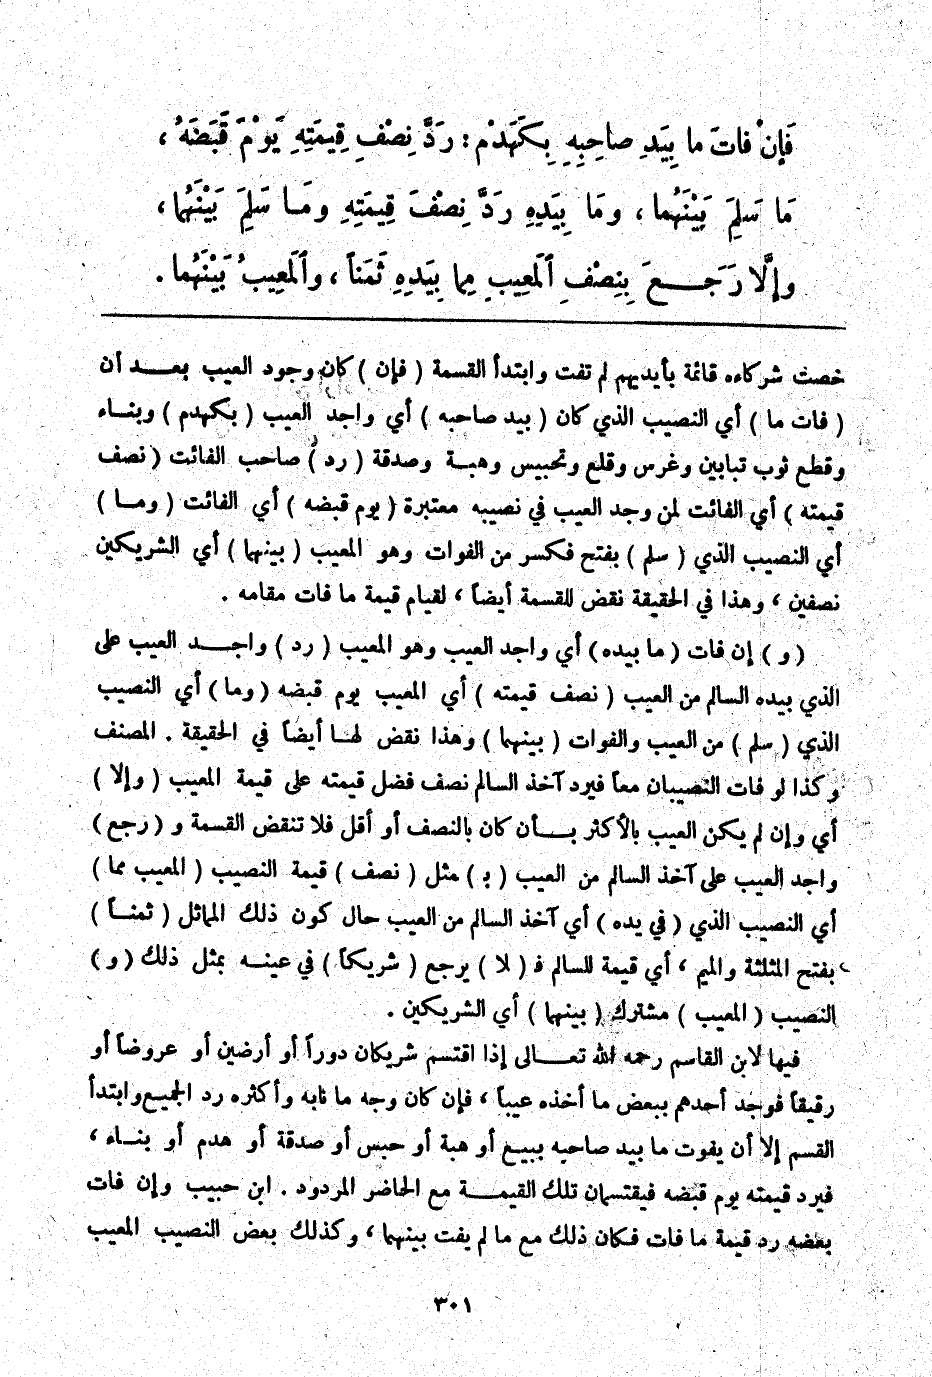 فَإِنْ فاتَ ما بِيَدِ صاحِبِهِ بِكَهَدْمٍ : رَدَّ نِصْفِ قِيمَتِهِ يَوْمَ قَبَضَهُ ،
مَا سَلِمَ بَيْنَهُما ، ومَا بِيَدِهِ رَدَّ نِصْفَ قِيمَتِهِ ومَا سَلِمَ بَيْنَهُما ،
وإِلَّا رَجَعَ بِنِصْفِ ٱلْمَعِيبِ مِما بِيَدِهِ ثَمَناً ، وٱلْمَعِيبُ بَيْنَهُما .
خصت شركاءه قائمة بأيديهم لم تفت وابتدأ القسمة ( فإن ) كان وجود العيب بعد أن
( فات ما ) أي النصيب الذي كان ( بيد صاحبه ) أي واجد العيب ( بكهدم ) وبناء
وقطع ثوب تبابين وغرس وقلع وتحبيس وهبة وصدقة ( رد ) صاحب الفائت ( نصف
قيمته ) أي الفائت لمن وجد العيب في نصيبه معتبرة ( يوم قبضه ) أي الفائت ( وما )
أي النصيب الذي ( سلم ) بفتح فكسر من الفوات وهو المعيب ( بينهما ) أي الشريكين
نصفين ، وهذا في الحقيقة نقض للقسمة أيضاً ، لقيام قيمة ما فات مقامه .
( و ) إن فات ( ما بيده ) أي واجد العيب وهو المعيب ( رد ) واجد العيب على
الذي بيده السالم من العيب ( نصف قيمته ) أي المعيب يوم قبضه ( وما ) أي النصيب
الذي ( سلم ) من العيب والفوات ( بينهما ) وهذا نقض لها أيضاً في الحقيقة . المصنف
وكذا لو فات النصيبان معاً فيرد آخذ السالم نصف فضل قيمته على قيمة المعيب ( وإلا )
أي وإن لم يكن العيب بالأكثر بأن كان بالنصف أو أقل فلا تنقض القسمة و ( رجع )
واجد العيب على آخذ السالم من العيب ( بـ ) مثل ( نصف ) قيمة النصيب ( المعيب مما )
أي النصيب الذي ( في يده ) أي آخذ السالم من العيب حال كون ذلك المماثل ( ثمناً )
بفتح المثلثة والميم ، أي قيمة للسالم فـ ( لا ) يرجع ( شريكاً ) في عينه بمثل ذلك ( و )
النصيب ( المعيب ) مشترك ( بينهما ) أي الشريكين .
فيها لابن القاسم رحمه الله تعالى إذا اقتسم شريكان دوراً أو أرضين أو عروضاً أو
رقيقاً فوجد أحدهم ببعض ما أخذه عيباً ، فإن كان وجه ما نابه وأكثره رد الجميع وابتدأ
القسم إلا أن يفوت ما بيد صاحبه ببيع أو هبة أو حبس أو صدقة أو هدم أو بناء ،
فيرد قيمته يوم قبضه فيقتسمان تلك القيمة مع الحاضر المردود . ابن حبيب وإن فات
بعضه رد قيمة ما فات فكان ذلك مع ما لم يفت بينهما ، وكذلك بعض النصيب المعيب
٣٠١